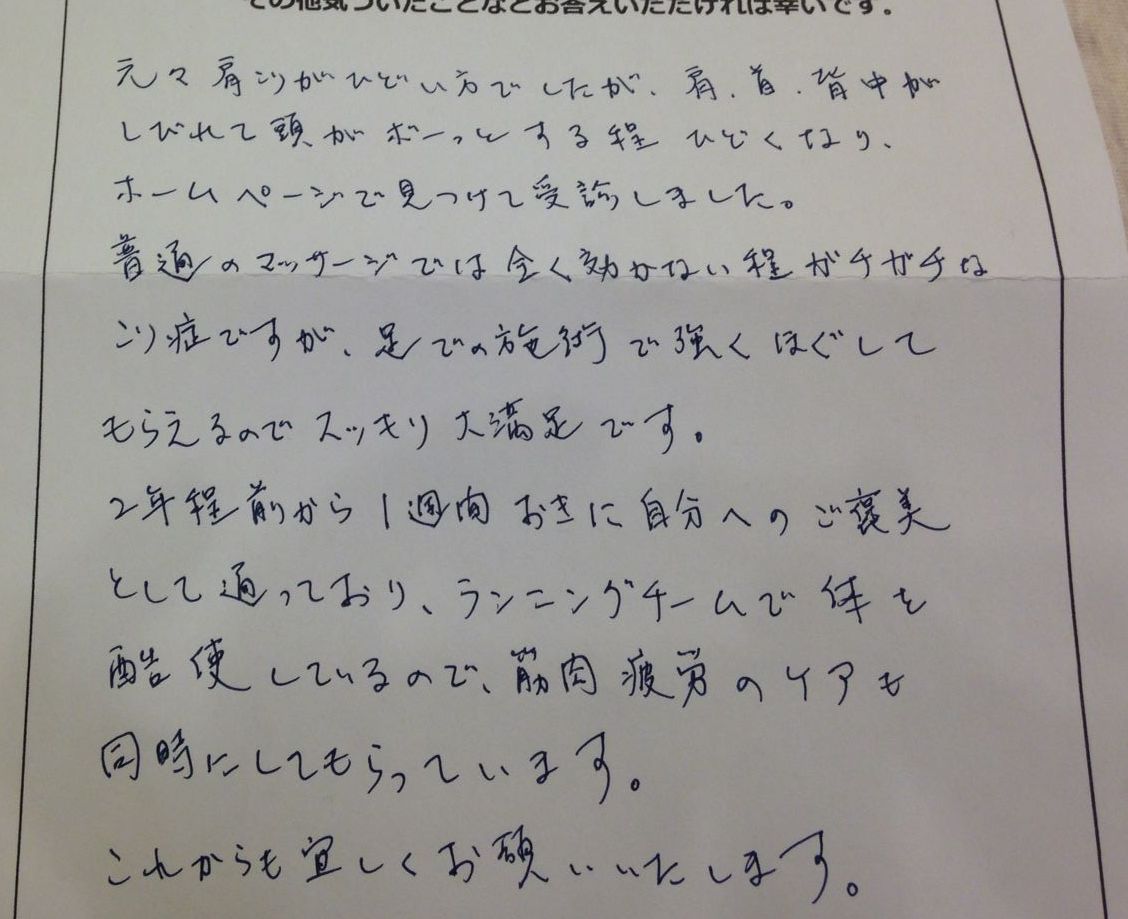 その他気づいたことなどお答えいただければ幸いです。
元々肩こりがひどい方でしたが、肩、首、背中が
しびれて頭がボーっとする程ひどくなり、
ホームページで見つけて受診しました。
普通のマッサージでは全く効かない程ガチガチな
こり症ですが、足での施術で強くほぐして
もらえるのでスッキリ大満足です。
2年程前から1週間おきに自分へのご褒美
として通っており、ランニングチームで体を
酷使しているので、筋肉疲労のケアも
同時にしてもらっています。
これからも宜しくお願いいたします。